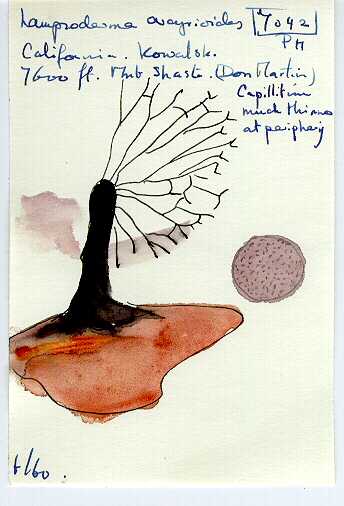 Lamproderma arcyrioides 7042
PM
California. Kowalski.
7600 ft. Mnt Shasta. (Don Martin)
Capillitium
much thinner
at periphery
1/60.